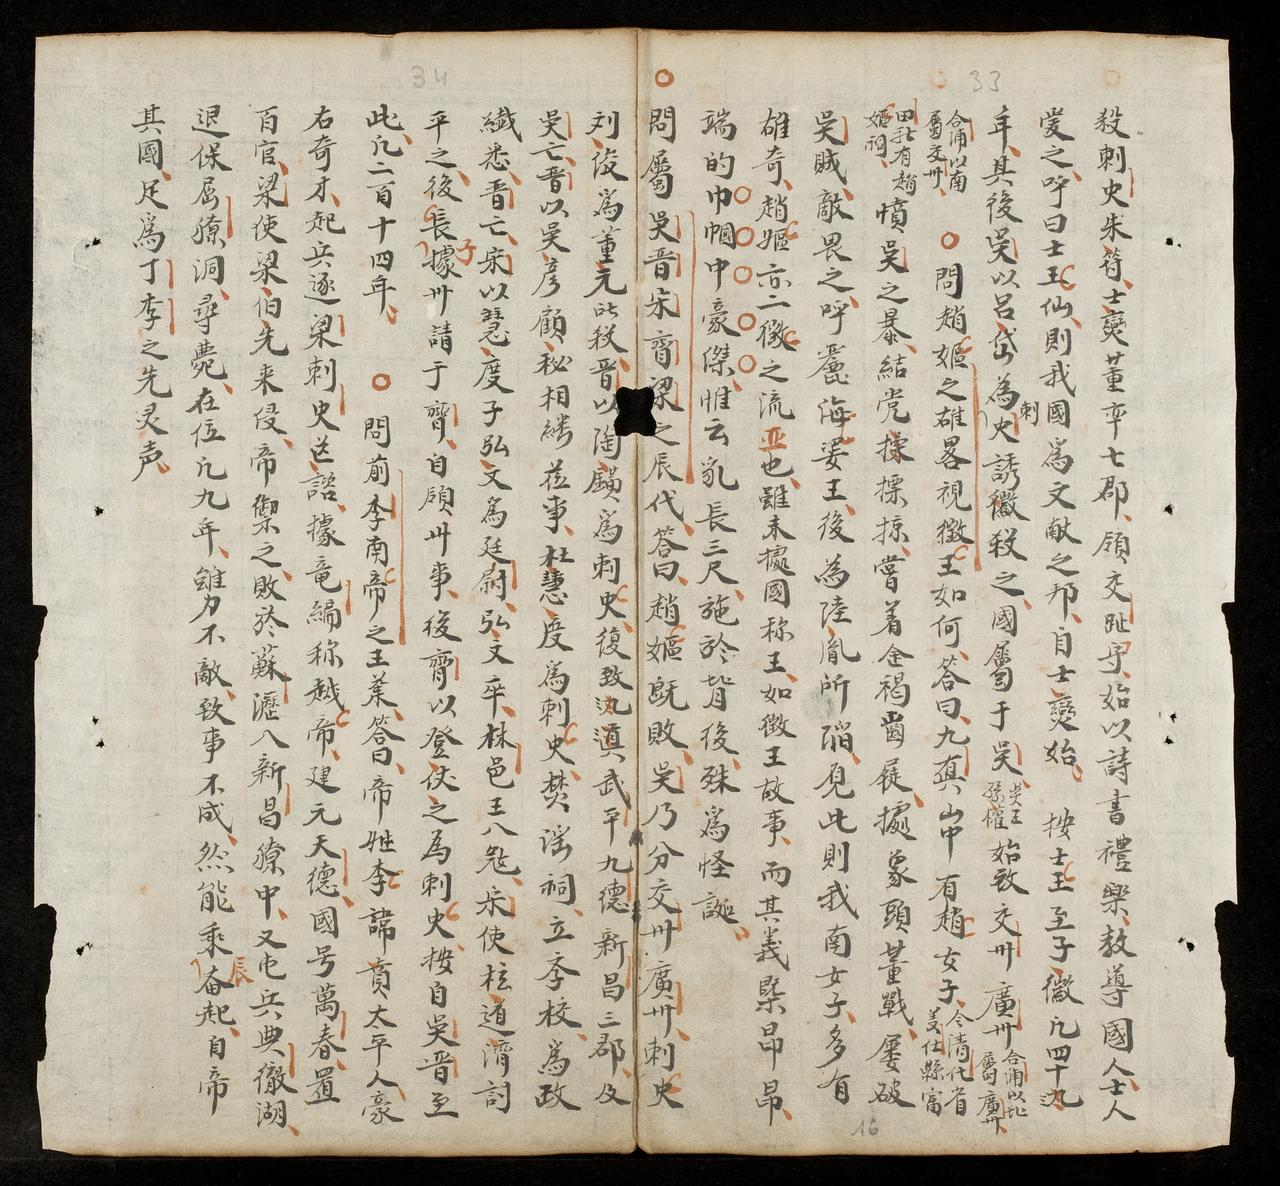 33
殺刺史朱符、士燮董率七郡、領交趾守、始以詩書禮樂、教導國人、士人
愛之、呼曰士王仙、則我國爲文献之邦、自士燮始、按士王至子徽凡四十九
年、其後吳以呂岱為刺史、誘徽殺之、國屬于吳、吳王孫權始改交州廣州合浦以北屬廣州
合浦以南屬交州、問趙嫗之雄畧視徵王如何、答曰、九真山中有趙女子、今清化省美化縣富
田社有趙嫗祠、憤吳之暴、結党操掠、嘗着金褐齒屐、據象頭董戰、屢破
吳賊、敵畏之、呼麗海婆王、後為陸胤所滔、見此則我南女子、多有
雄奇、趙嫗亦二徵之流亞也、雖未據國称王、如徵王故事、而其義槩昂昂、
端的巾幗中豪傑、惟云乳長三尺、施於背後、殊爲怪誕、
問屬吳晋宋齊梁之辰代、答曰、趙嫗既敗、吳乃分交州廣州、刺史
34
刘俊爲董元所殺、晋以陶鐄爲刺史、復致九真武平九德新昌三郡、及
吳亡、晋以吳彦顧秘相継莅事、杜慧度爲刺史、焚滛祠、立孝校、為政
纎悉、晋亡、宋以慧度子弘文爲廷尉、弘文卒、林邑王入宼、宋使桓道濟討
平之、後長子據州請于齊、自領州事、後齊以登伕之為刺史、按自吳晋至
此、凡二百十四年、問前李南帝之王業、答曰、帝姓李諱賁太平人、豪
右奇才、起兵逐梁刺史䢛諮、據竜編称越帝、建元天德、國号萬春、置
百官、梁使梁伯先来侵、帝禦之、敗於蘇瀝、入新昌獠中、又屯兵典徹湖、
退保屈獠洞、尋薨、在位凡九年、雖力不敵、致事不成、然能乘辰奋起、自帝
其國、足爲丁李之先灵声、
16